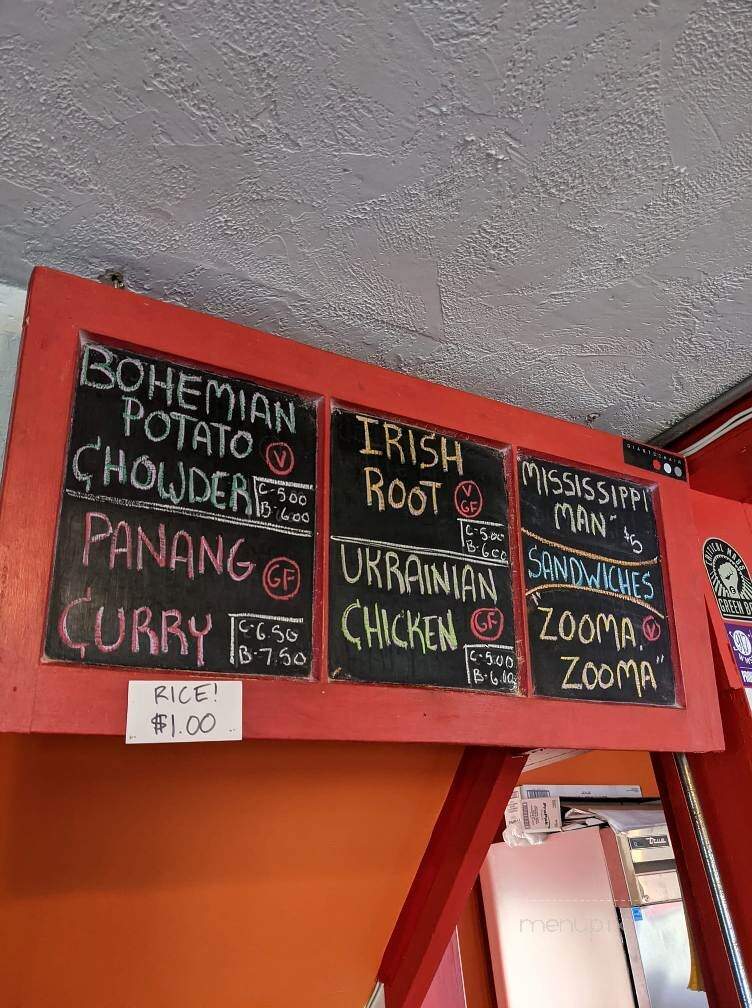 BOHEMIAN
POTATO
CHOWDER
V
C-5.00
B-6.00
PANANG
CURRY
GF
C-6.50
B-7.50
RICE!
$1.00
IRISH
ROOT
V
GF
C-5.00
B-6.00
UKRAINIAN
CHICKEN
GF
C-5.00
B-6.00
MISSISSIPPI
MAN" $5
SANDWICHES
"ZOOMA,
V
ZOOMA"
GREEN
True
menupix